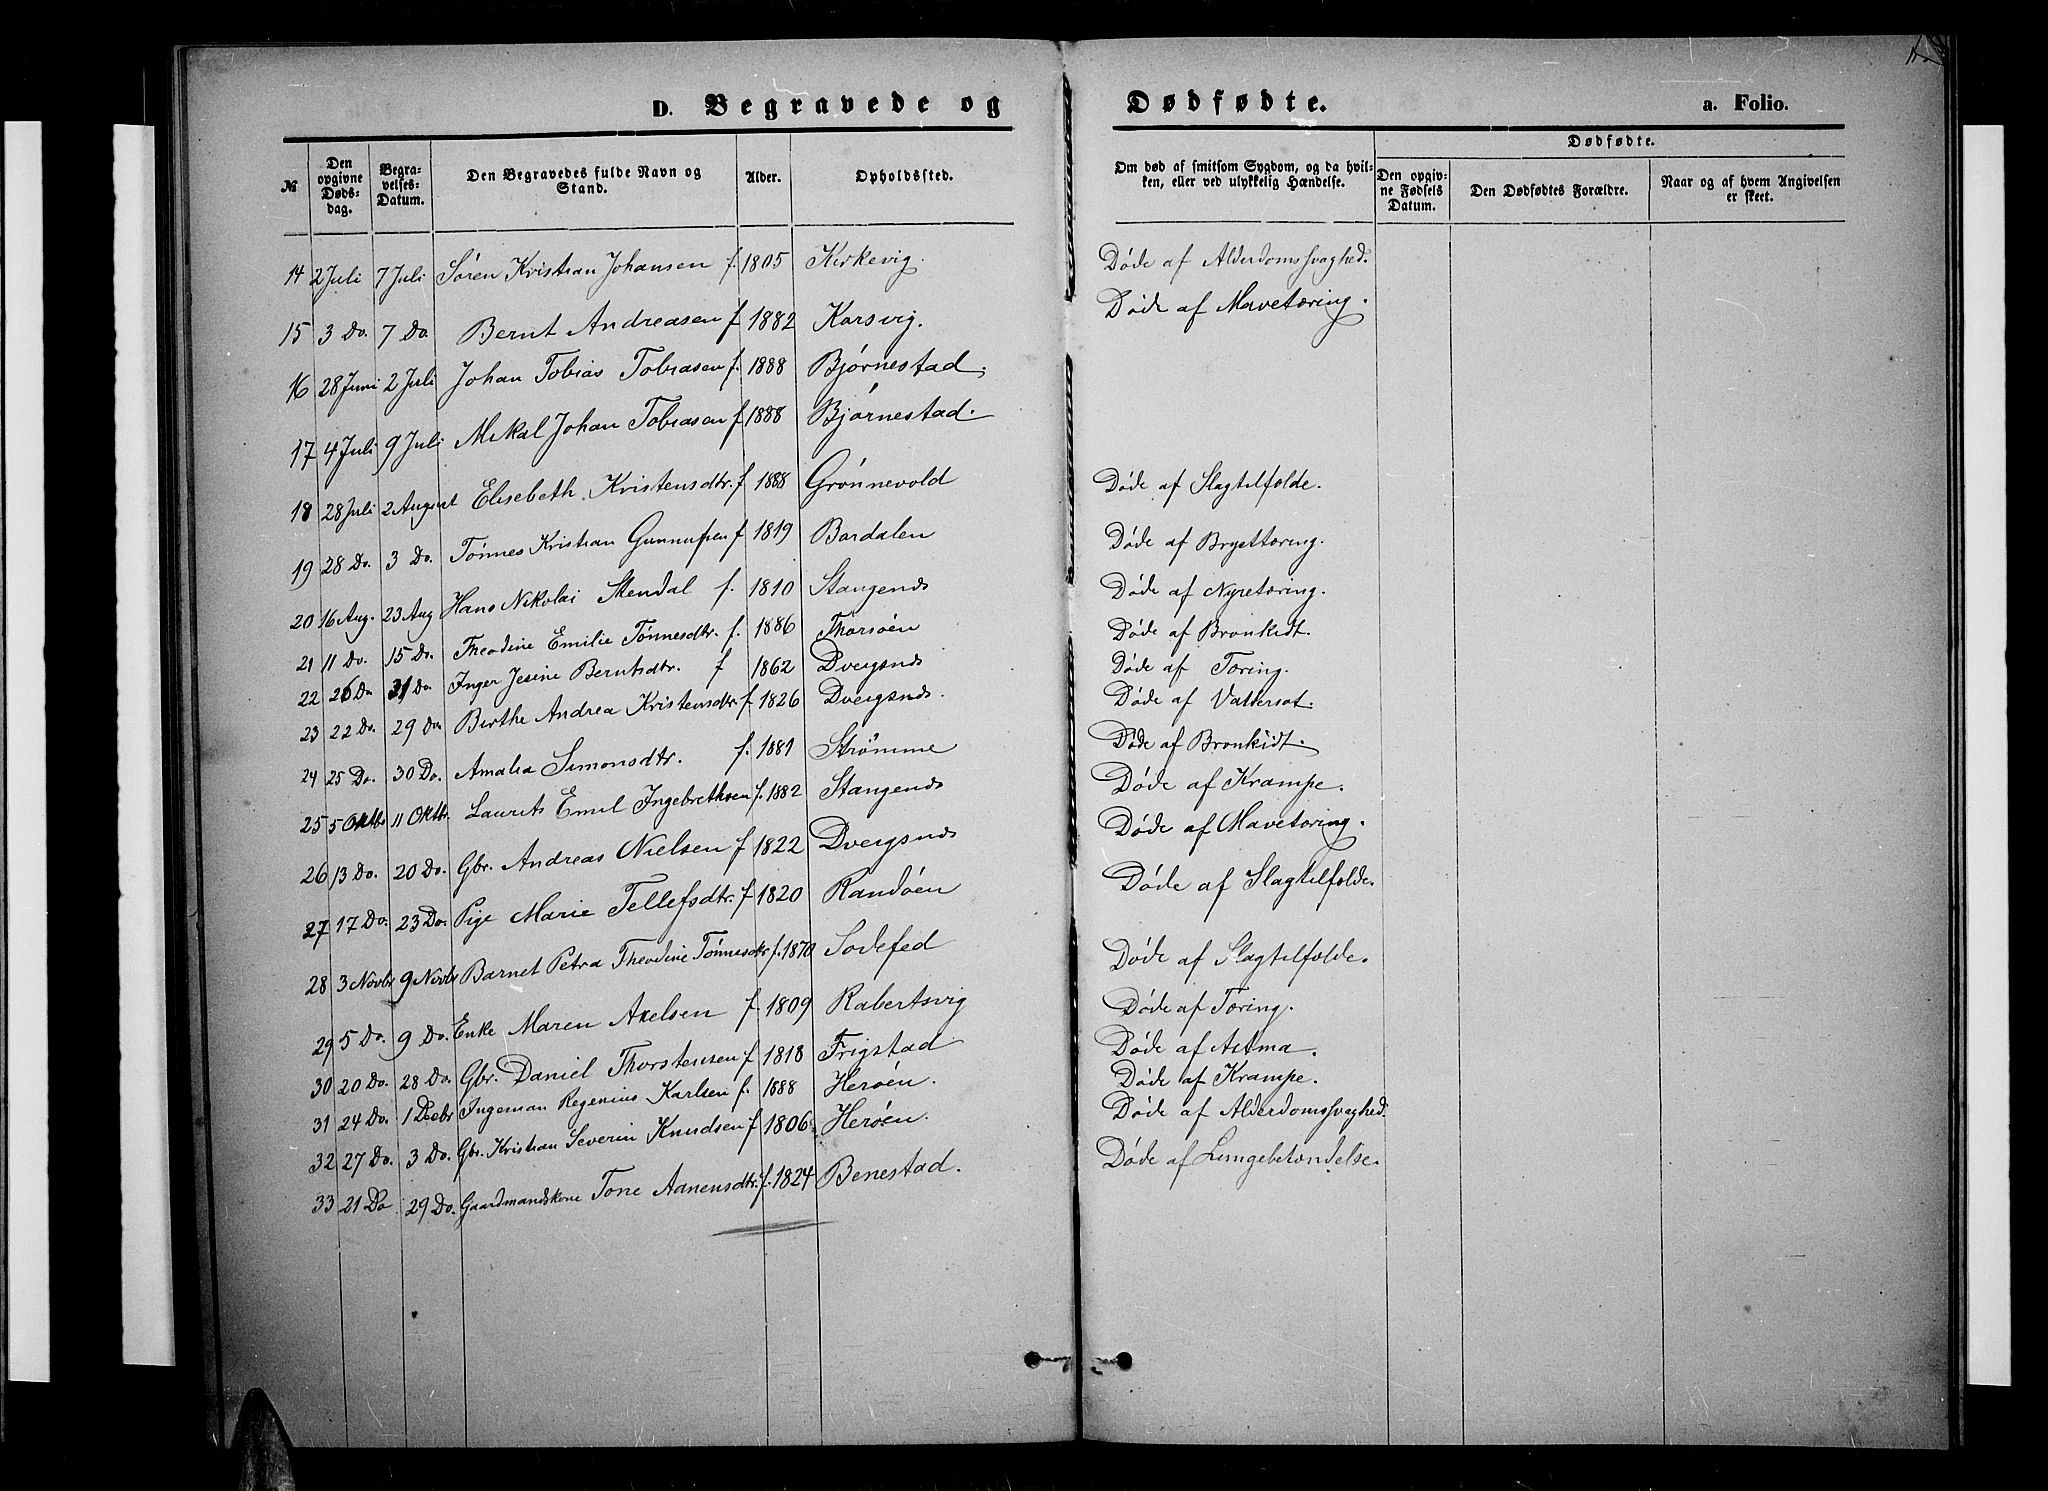 D. Begravede og Dødfødte. a. Folio.
№ Den opgivne Døds-dag. Begra-velses-Datum. Den Begravedes fulde Navn og Stand. Alder. Opholdssted. Om død af smitsom Sygdom, og da hvil-ken, eller ved ulykkelig Hændelse. Dødfødte. Den opgiv-ne Fødsels Datum. Den Dødfødtes Forældre. Naar og af hvem Angivelsen er skeet.
14 2 Juli 7 Juli Søren Kristian Johansen f. 1805 Kirkevig. Døde af Alderdomssvaghed.
15 3 Do. 7 Do. Bernt Andreasen f 1882 Korsvig. Døde af Mavetæring.
16 28 Juni 2 Juli Johan Tobias Tobiasen f. 1888 Bjørnestad.
17 4 Juli 9 Juli Mikal Johan Tobiasen f 1888 Bjørnestad.
18 28 Juli 2 August Elisebeth Kristensdtr. f 1888 Grønnevold Døde af Slagtilfælde.
19 28 Do. 3 Do. Tønnes Kristian Gunnufsen f 1819 Bordalen Døde af Brysttæring.
20 16 Aug. 23 Aug Hans Nikolai Stendal f. 1810 Stangenæs Døde af Nyretæring.
21 11 Do. 15 Do. Theodine Emilie Tønnesdtr. f. 1886 Thorsøen Døde af Bronkidt.
22 26 Do 31 Do. Inger Jesine Berntsdtr. f 1862 Dvergsnæs Døde af Tæring.
23 22 Do. 29 Do. Birthe Andrea Kristensdtr. f 1826 Dvergsnæs. Døde af Vattersot.
24 25 Do. 30 Do. Amalia Simonsdtr. f. 1881 Strømme Døde af Bronkidt.
25 5 Oktbr 11 Oktbr. Laurits Emil Ingebrethsen f. 1882 Stangenæs Døde af Krampe.
26 13 Do. 20 Do. Gbr. Andreas Nielsen f 1822 Dvergsnæs Døde af Mavetæring.
27 17 Do. 23 Do. Pige Marie Tellefsdtr. f 1820 Randøen Døde af Slagtilfælde.
28 3 Novbr 9 Novbr Barnet Petra Theodine Tønnesdtr f. 1870 Sodefed Døde af Slagtilfælde.
29 5 Do. 9 Do. Enke Maren Axelsen f. 1809 Rabertsvig Døde af Tæring.
30 20 Do. 28 Do. Gbr. Daniel Thorstensen f 1818 Frigstad Døde af Astma.
31 24 Do. 1 Decbr Ingeman Regenius Karlsen f. 1888 Herøen. Døde af Krampe.
32 27 Do. 3 Do. Gbr. Kristian Severin Knudsen f 1806 Herøen. Døde af Alderdomssvaghed.
33 21 Do 29 Do. Gaardmandskone Tone Aanensdtr. f. 1824 Benestad. Døde af Lungebetændelse.